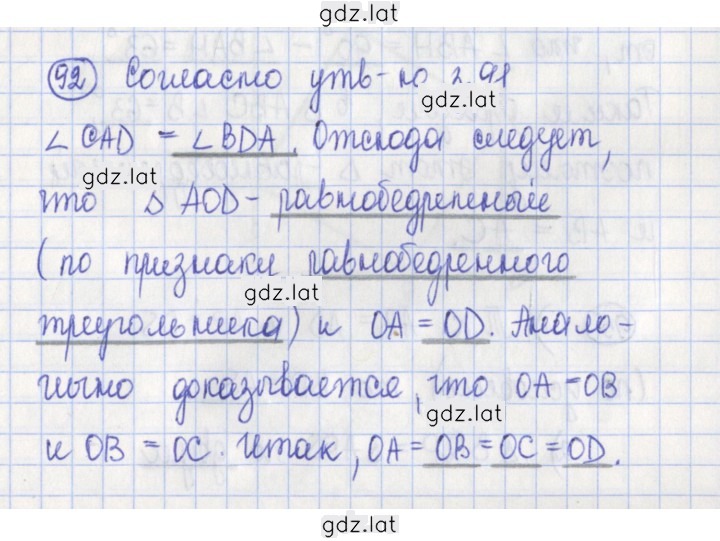 gdz.lat
92 Согласно утв-ю 2.91
gdz.lat
∠ CAD = ∠ BDA. Отсюда следует,
gdz.lat
что △ AOD - равнобедренный
(по признаки равнобедренного
gdz.lat
треугольника) и OA = OD. Анало-
гично доказывается, что OA = OB
gdz.lat
и OB = OC. Итак, OA = OB = OC = OD.
gdz.lat